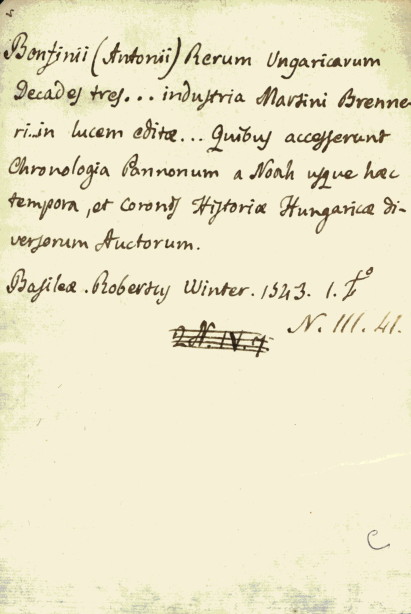 Bonfinii (Antonii) Rerum Ungaricarum
Decades tres... industria Martini Brenne-
ri...in lucem editæ... Quibus accesserunt
Chronologia Pannonum a Noah usque hæc
tempora, et Coronis Historiæ Hungaricæ di-
versorum Auctorum.
Basileæ. Robertus Winter. 1543. 1. fo
2 N. IV. 7.
N. III. 41.
C